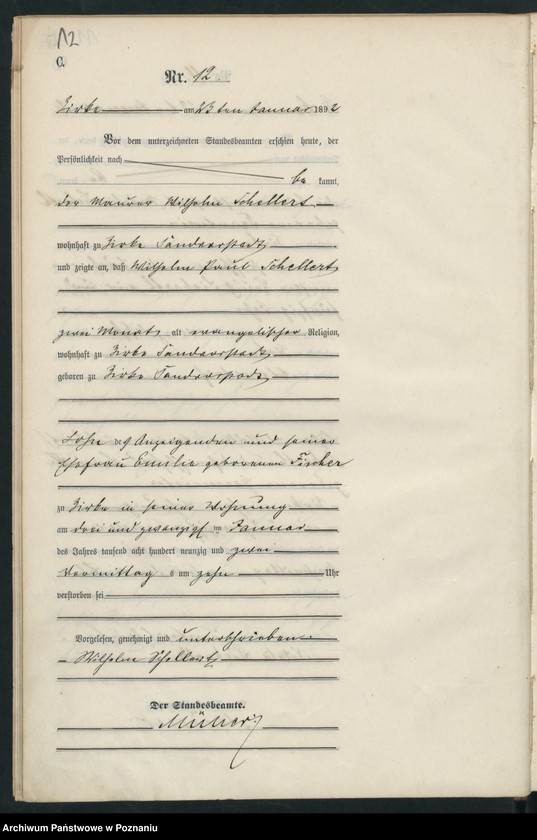 12
C.
Nr. 12
Zirke am 23ten Januar 1892
Vor dem unterzeichneten Standesbeamten erschien heute, der
Persönlichkeit nach
be kannt,
der Maurer Wilhelm Schellert
wohnhaft zu Zirke
und zeigte an, daß Wilhelm Paul Schellert
zwei Monat alt evangelischer Religion,
wohnhaft zu Zirke
geboren zu Zirke
Sohn des Anzeigenden und seiner
Ehefrau Emilie geborenen Fischer
zu Zirke in seiner Wohnung
am drei und zwanzigsten Januar
des Jahres tausend acht hundert neunzig und zwei
Vormittags um zehn Uhr
verstorben sei
Vorgelesen, genehmigt und unterschrieben
Wilhelm Schellert
Der Standesbeamte.
Müller
Archiwum Państwowe w Poznaniu